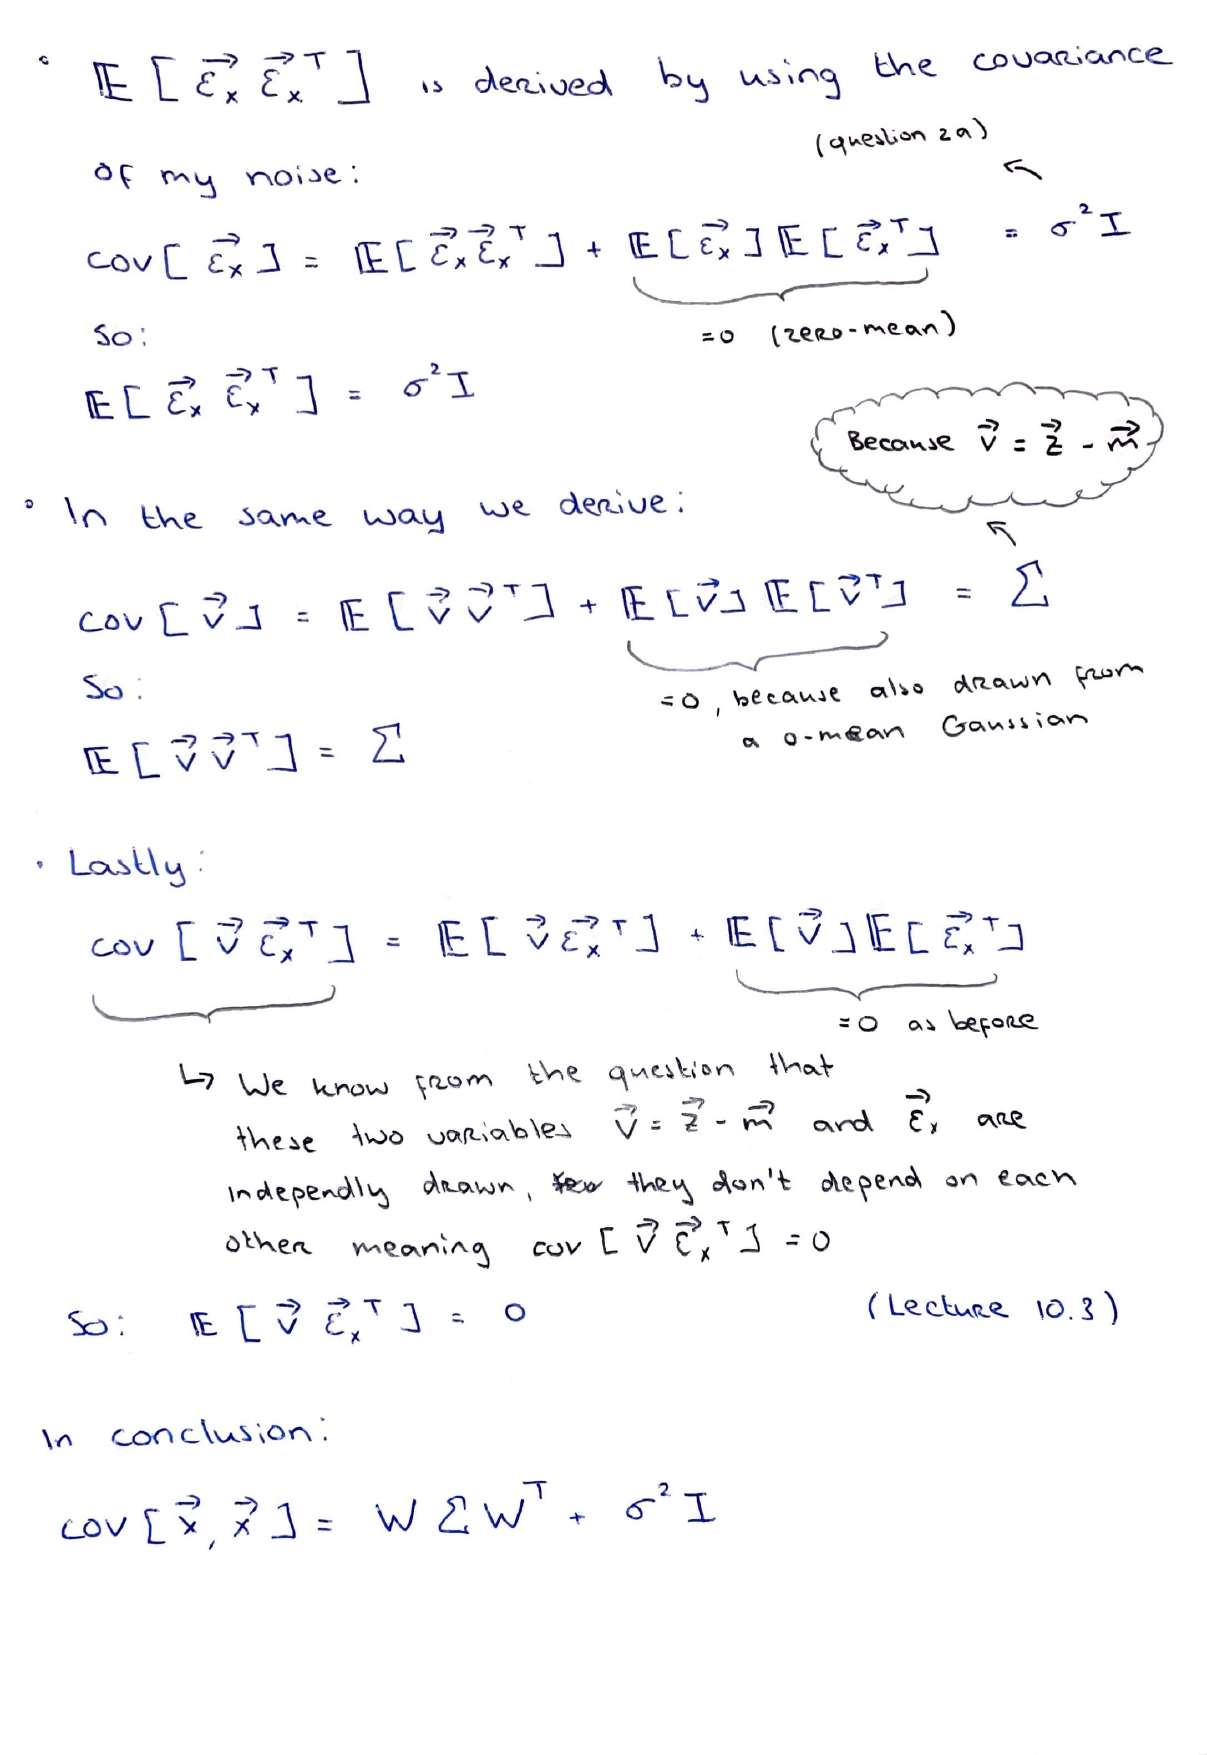 ° 𝔼[ε⃗ₓ ε⃗ₓᵀ] is derived by using the covariance
(question 2a)
of my noise:
cov[ε⃗ₓ] = 𝔼[ε⃗ₓ ε⃗ₓᵀ] + 𝔼[ε⃗ₓ]𝔼[ε⃗ₓᵀ] = σ²I
So:
=0 (zero-mean)
𝔼[ε⃗ₓ ε⃗ₓᵀ] = σ²I
Because v⃗ = z⃗ - m⃗
° In the same way we derive:
cov[v⃗] = 𝔼[v⃗ v⃗ᵀ] + 𝔼[v⃗]𝔼[v⃗ᵀ] = Σ
So:
=0, because also drawn from
a 0-mean Gaussian
𝔼[v⃗ v⃗ᵀ] = Σ
• Lastly:
cov[v⃗ ε⃗ₓᵀ] = 𝔼[v⃗ ε⃗ₓᵀ] + 𝔼[v⃗]𝔼[ε⃗ₓᵀ]
=0 as before
↳ We know from the question that
these two variables v⃗ = z⃗ - m⃗ and ε⃗ₓ are
independly drawn, they don't depend on each
other meaning cov[v⃗ ε⃗ₓᵀ] = 0
So: 𝔼[v⃗ ε⃗ₓᵀ] = 0 (Lecture 10.3)
In conclusion:
cov[x⃗, x⃗] = WΣWᵀ + σ²I